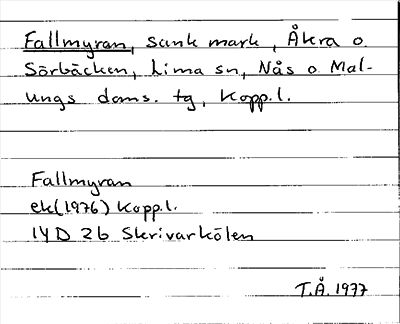 Fallmyran, sank mark, Åkra o.
Sörbäcken, Lima sn, Nås o Mal-
ungs doms. tg, Kopp.l.
Fallmyran
ek (1976) Kopp.l.
14D 2b Skrivarkölen
T.Å. 1977